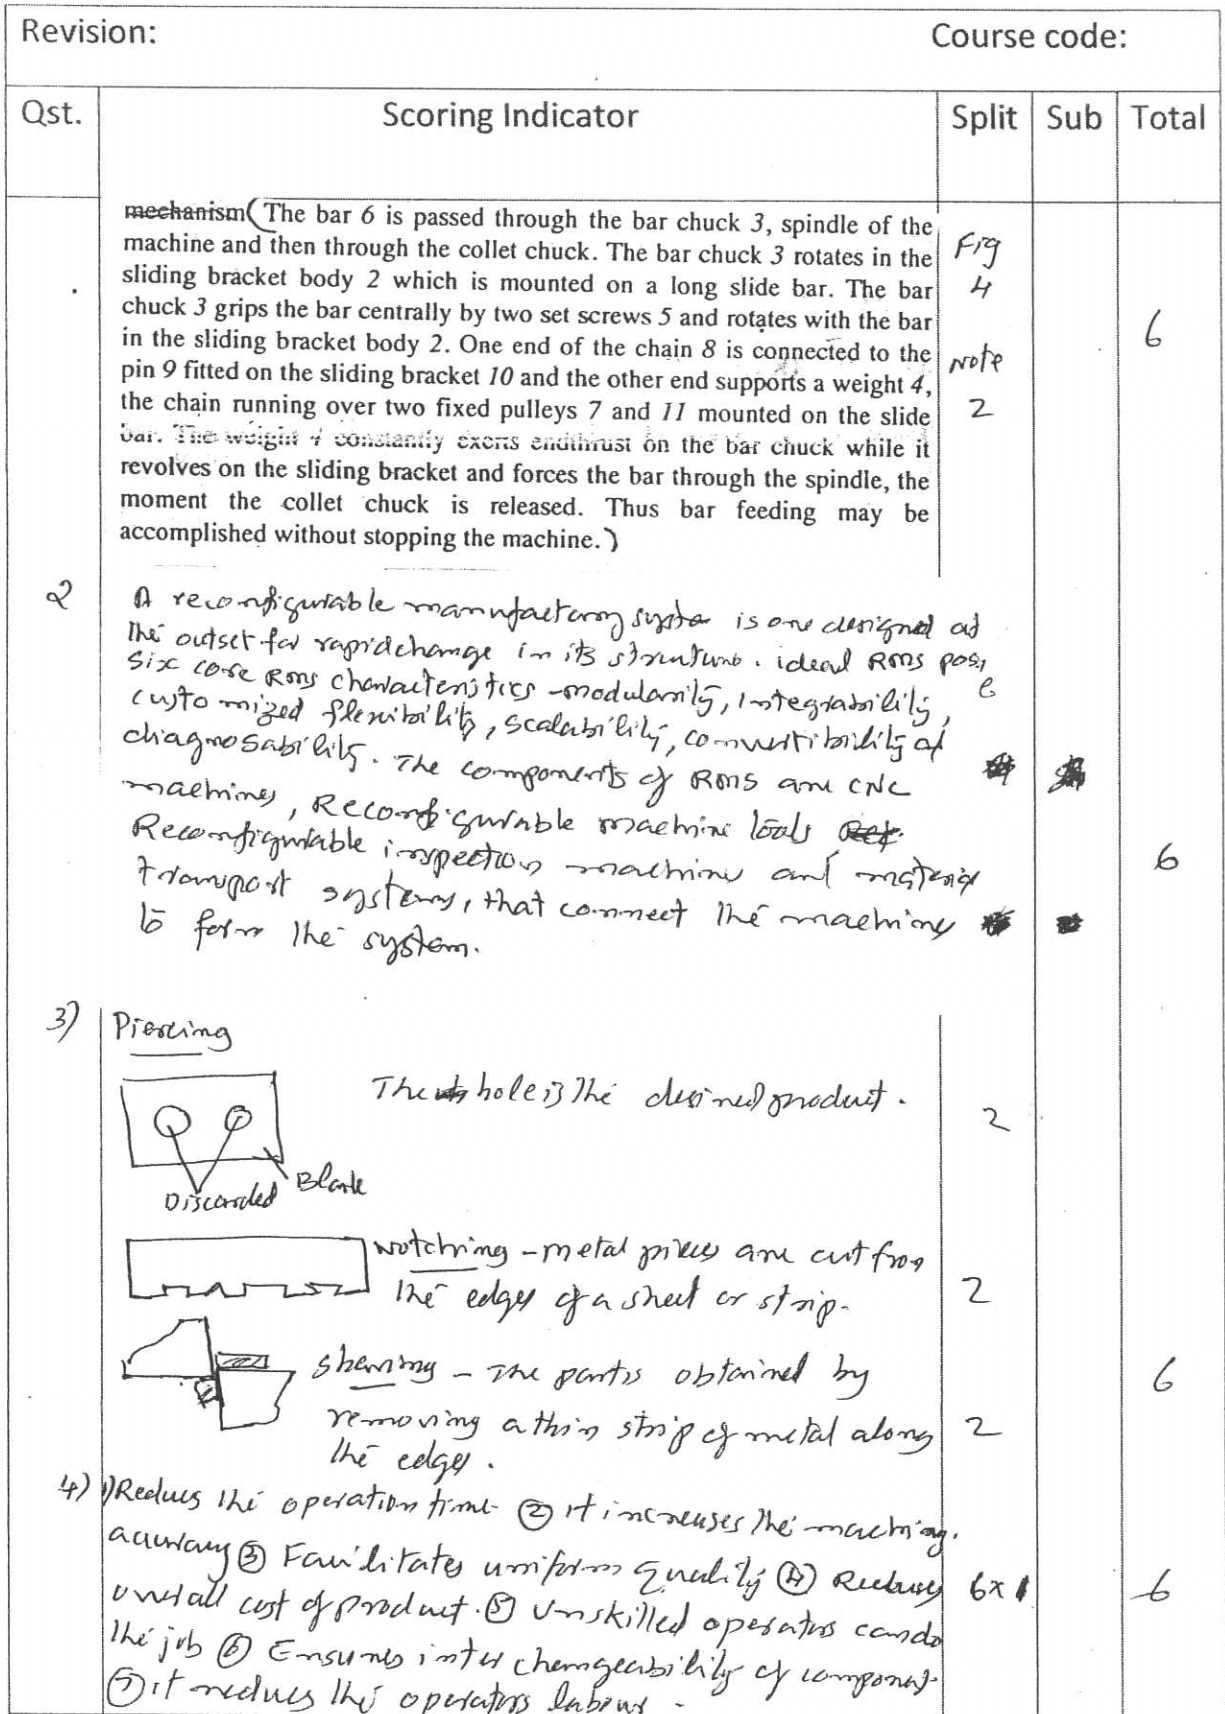 Revision:
Course code:
Qst.
Scoring Indicator
Split
Sub
Total
mechanism (The bar 6 is passed through the bar chuck 3, spindle of the
machine and then through the collet chuck. The bar chuck 3 rotates in the
sliding bracket body 2 which is mounted on a long slide bar. The bar
chuck 3 grips the bar centrally by two set screws 5 and rotates with the bar
in the sliding bracket body 2. One end of the chain 8 is connected to the
pin 9 fitted on the sliding bracket 10 and the other end supports a weight 4,
the chain running over two fixed pulleys 7 and 11 mounted on the slide
bar. The weight 4 constantly exerts endthrust on the bar chuck while it
revolves on the sliding bracket and forces the bar through the spindle, the
moment the collet chuck is released. Thus bar feeding may be
accomplished without stopping the machine.)
Fig
4
Note
2
6
2
A reconfigurable manufacturing system is one designed at
the outset for rapid change in its structure. ideal RMS poss
e
six core RMS characteristics - modularity, integrability,
customized flexibility, scalability, convertibility of
diagnosability. The components of RMS are CNC
machines, Reconfigurable machine tools
Reconfigurable inspection machines and material
transport systems, that connect the machines
to form the system.
6
3) Piercing
The hole is the desired product.
2
Discarded
Blank
Notching - metal pieces are cut from
the edges of a sheet or strip.
2
shaving - The part is obtained by
removing a thin strip of metal along
the edges.
2
6
4) 1) Reduces the operation time ② it increases the machining.
accuracy ③ Facilitates uniform quality ④ Reduces
overall cost of product. ⑤ Unskilled operators can do
the job ⑥ Ensures inter changeability of component.
⑦ it reduces the operators labour.
6x1
6